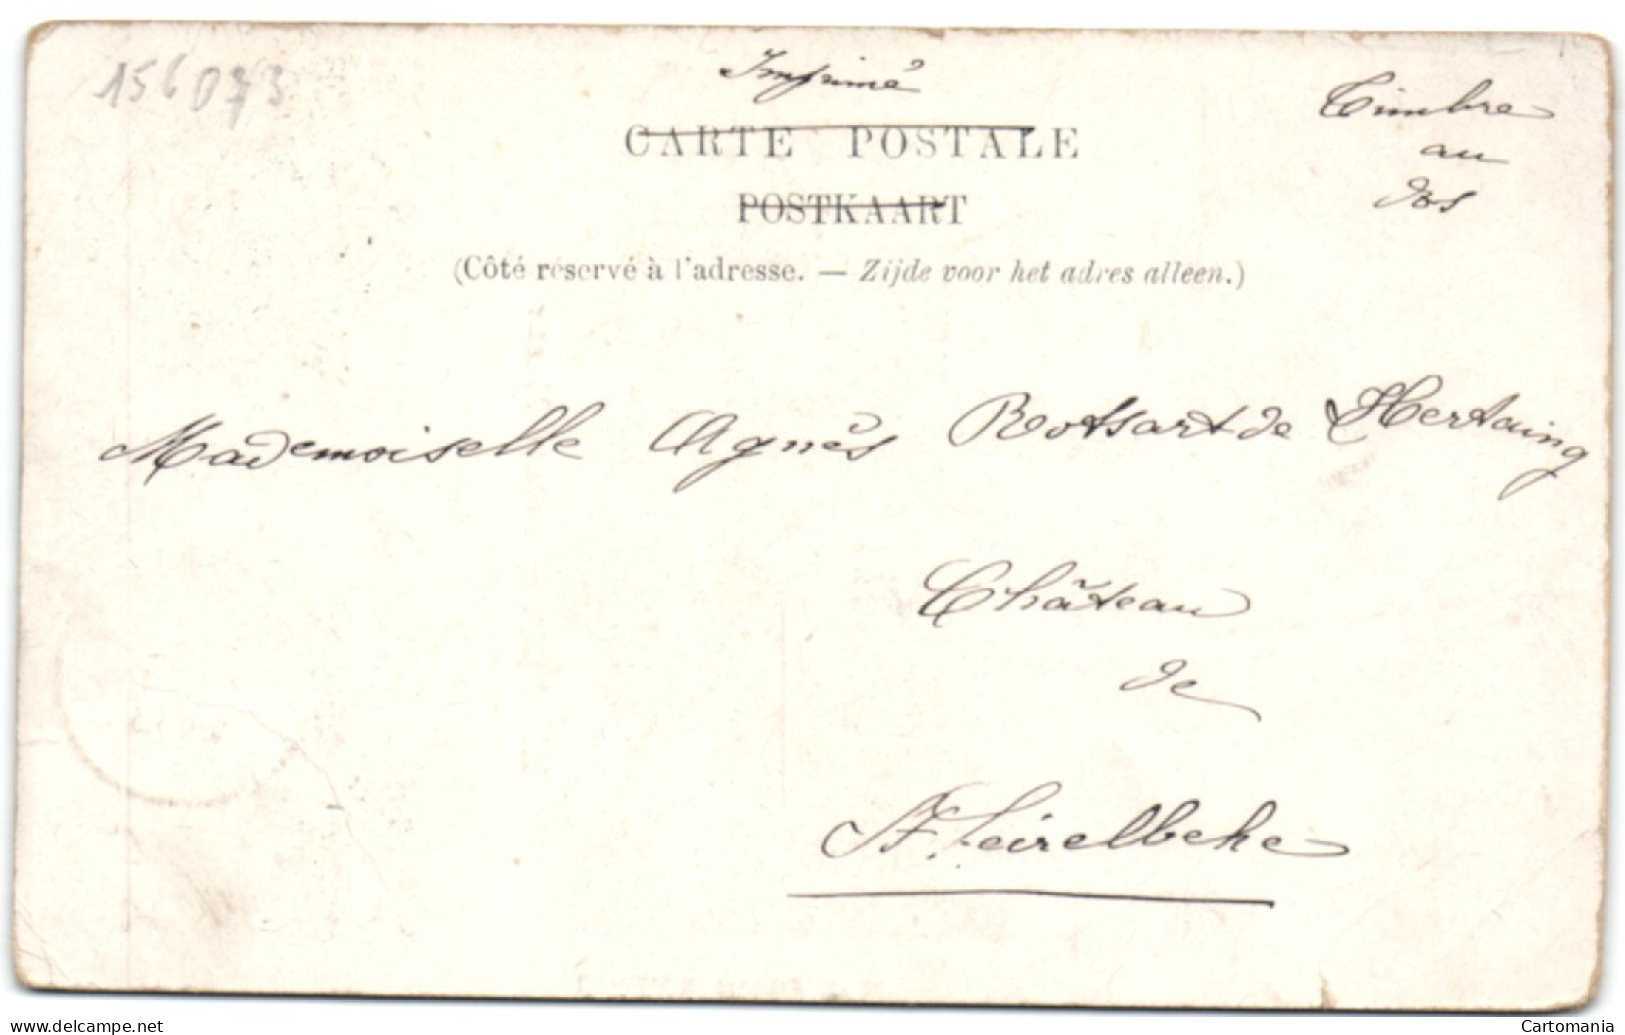 156073
Imprimé
Timbre
au
dos
CARTE POSTALE
POSTKAART
(Côté réservé à l'adresse. — Zijde voor het adres alleen.)
Mademoiselle Agnès Rotsart de Hertaing
Château
de
www.delcampe.net
Cartomania